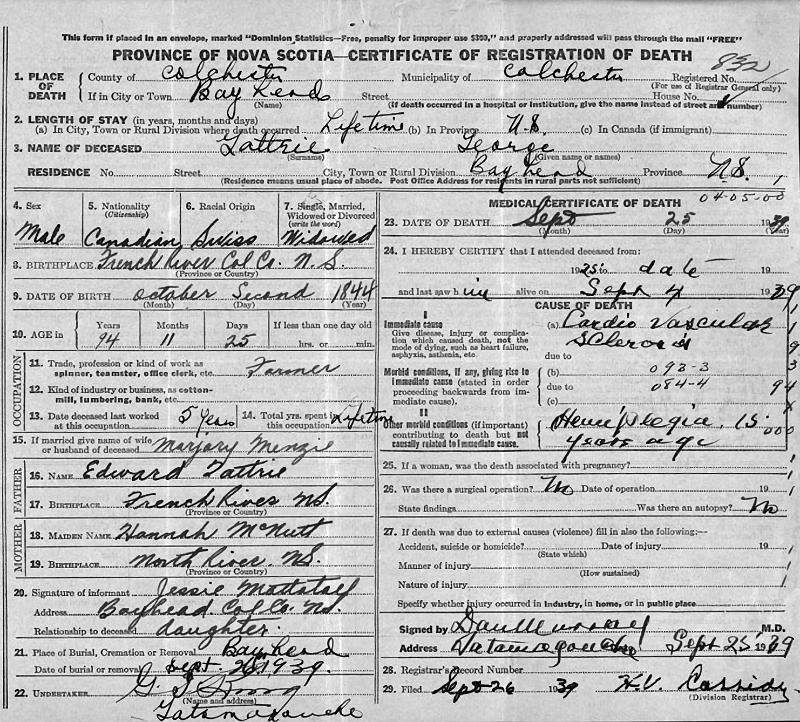 This form if placed in an envelope, marked "Dominion Statistics—Free, penalty for improper use $300," and properly addressed will pass through the mail "FREE"
PROVINCE OF NOVA SCOTIA—CERTIFICATE OF REGISTRATION OF DEATH
832
1. PLACE OF DEATH County of Colchester Municipality of Colchester Registered No.
(For use of Registrar General only)
If in City or Town Bay Head Street House No.
(Name) (If death occurred in a hospital or institution, give the name instead of street and number)
2. LENGTH OF STAY (in years, months and days)
(a) In City, Town or Rural Division where death occurred Lifetime (b) In Province N.S. (c) In Canada (if immigrant)
3. NAME OF DECEASED Tattrie George
(Surname) (Given name or names)
RESIDENCE No. Street City, Town or Rural Division Bayhead Province N.S.
(Residence means usual place of abode. Post Office Address for residents in rural parts not sufficient)
4. Sex 5. Nationality (Citizenship) 6. Racial Origin 7. Single, Married, Widowed or Divorced (write the word)
Male Canadian Swiss Widowed
8. BIRTHPLACE French River Col Co. N.S.
(Province or Country)
9. DATE OF BIRTH October Second 1844
(Month) (Day) (Year)
10. AGE in Years Months Days If less than one day old
94 11 25 hrs. or min.
OCCUPATION
11. Trade, profession or kind of work as spinner, teamster, office clerk, etc. Farmer
12. Kind of industry or business, as cotton-mill, lumbering, bank, etc.
13. Date deceased last worked at this occupation 5 years 14. Total yrs. spent in this occupation Lifetime
15. If married give name of wife or husband of deceased Marjory Menzie
FATHER
16. NAME Edward Tattrie
17. BIRTHPLACE French River NS.
(Province or Country)
MOTHER
18. MAIDEN NAME Hannah McNutt
19. BIRTHPLACE North River. NS.
(Province or Country)
20. Signature of informant Jessie Mattatall
Address Bayhead Col Co. NS.
Relationship to deceased daughter.
21. Place of Burial, Cremation or Removal Bayhead
Date of burial or removal Sept 26 1939.
22. UNDERTAKER
(Name and address)
Tatamagouche
MEDICAL CERTIFICATE OF DEATH 04-05-00
23. DATE OF DEATH Sept 25 1939
(Month) (Day) (Year)
24. I HEREBY CERTIFY that I attended deceased from:
19 25 to date 19
and last saw him alive on Sept 4 1939
CAUSE OF DEATH
I
Immediate cause
Give disease, injury or complication which caused death, not the mode of dying, such as heart failure, asphyxia, asthenia, etc.
(a) Cardio Vascular Sclerosis
due to
Morbid conditions, if any, giving rise to immediate cause (stated in order proceeding backwards from immediate cause).
(b) 093-3
due to 084-4 94
(c)
II
Other morbid conditions (if important) contributing to death but not causally related to immediate cause.
Hemiplegia. 15 years ago
000
25. If a woman, was the death associated with pregnancy?
26. Was there a surgical operation? No Date of operation 19
State findings Was there an autopsy? No
27. If death was due to external causes (violence) fill in also the following:—
Accident, suicide or homicide? Date of injury 19
(State which)
Manner of injury
(How sustained)
Nature of injury
Specify whether injury occurred in industry, in home, or in public place
Signed by Dan Murray M.D.
Address Tatamagouche Sept 25 1939
28. Registrar's Record Number
29. Filed Sept 26 1939 H.V. Cassidy
(Division Registrar)